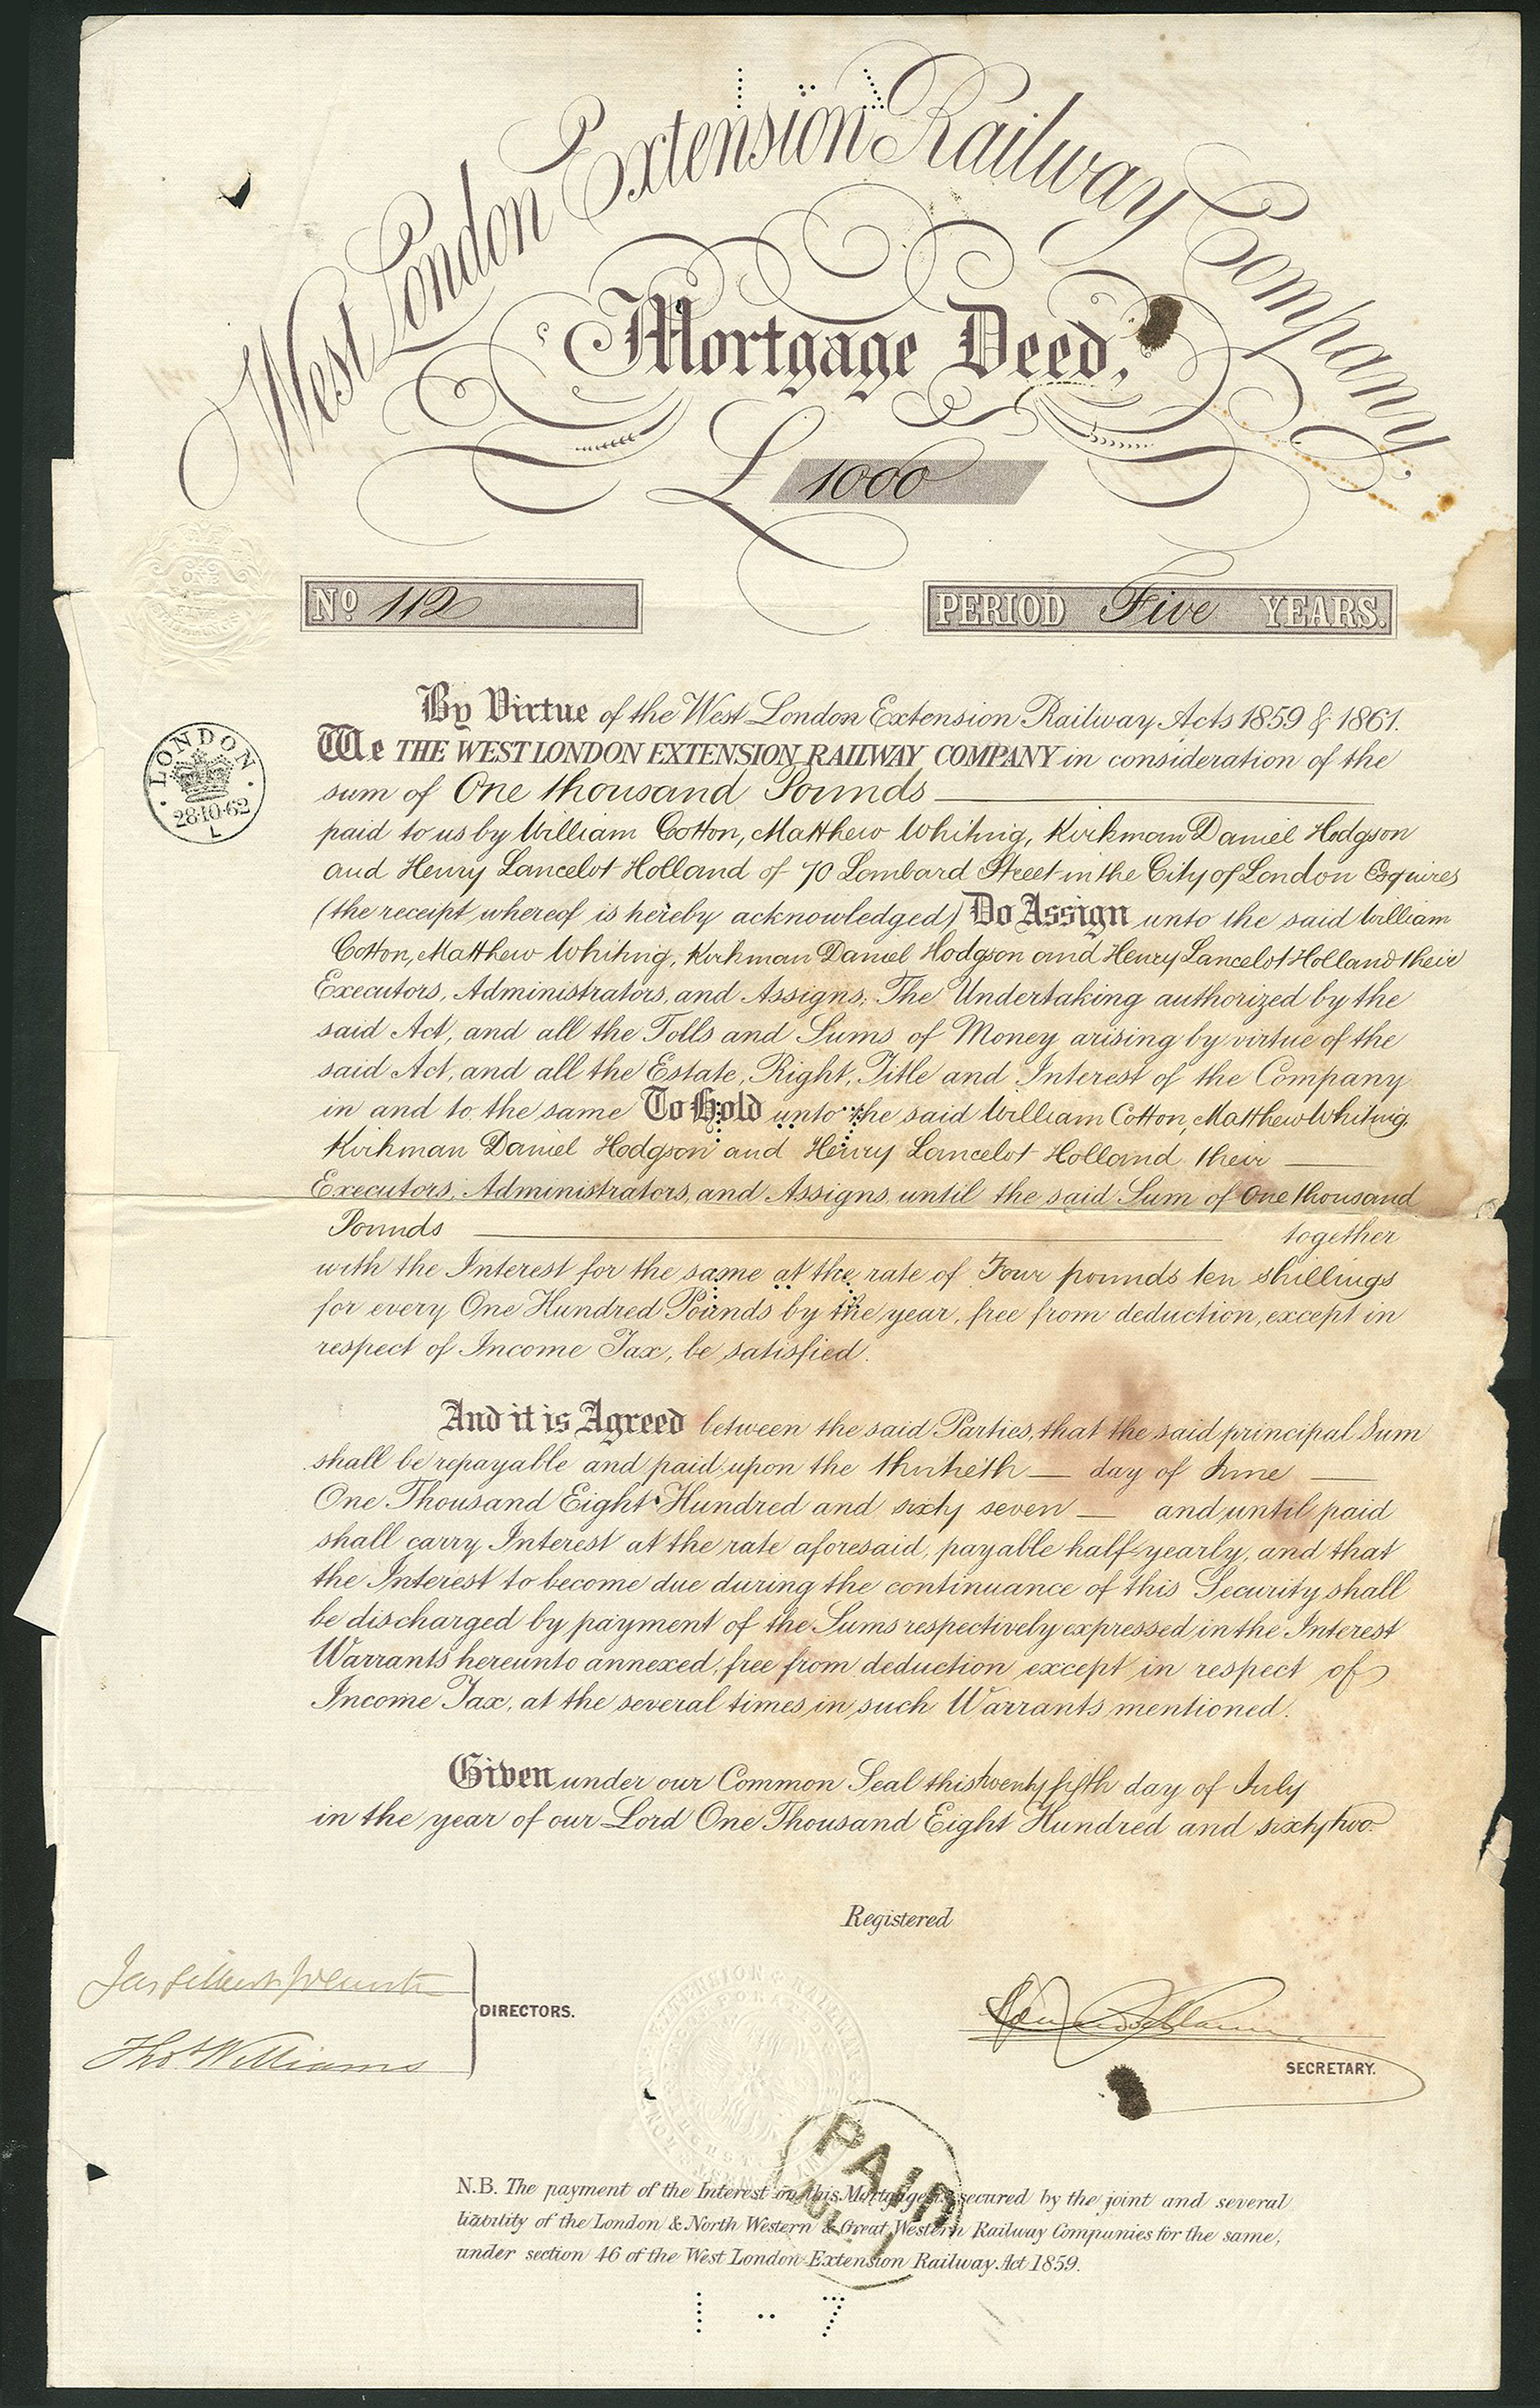 West London Extension Railway Company.
Mortgage Deed,
£ 1000
No 112
PERIOD Five YEARS.
ONE
LONDON
28·10·62
L
By Virtue of the West London Extension Railway Acts 1859 & 1861.
We THE WEST LONDON EXTENSION RAILWAY COMPANY in consideration of the
sum of One thousand Pounds
paid to us by William Cotton, Matthew Whiting, Kirkman Daniel Hodgson
and Henry Lancelot Holland of 70 Lombard Street in the City of London Esquires
(the receipt whereof is hereby acknowledged) Do Assign unto the said William
Cotton, Matthew Whiting, Kirkman Daniel Hodgson and Henry Lancelot Holland their
Executors, Administrators, and Assigns, The Undertaking authorized by the
said Act, and all the Tolls and Sums of Money arising by virtue of the
said Act, and all the Estate, Right, Title and Interest of the Company
in and to the same To Hold unto the said William Cotton, Matthew Whiting,
Kirkman Daniel Hodgson and Henry Lancelot Holland their
Executors, Administrators, and Assigns, until the said Sum of One thousand
Pounds together
with the Interest for the same at the rate of Four pounds ten shillings
for every One Hundred Pounds by the year, free from deduction, except in
respect of Income Tax, be satisfied.
And it is Agreed between the said Parties, that the said principal Sum
shall be repayable and paid upon the thirtieth day of June
One Thousand Eight Hundred and sixty seven and until paid
shall carry Interest at the rate aforesaid, payable half-yearly, and that
the Interest to become due during the continuance of this Security shall
be discharged by payment of the Sums respectively expressed in the Interest
Warrants hereunto annexed, free from deduction except in respect of
Income Tax, at the several times in such Warrants mentioned.
Given under our Common Seal this twenty fifth day of July
in the year of our Lord One Thousand Eight Hundred and sixty two
Registered
DIRECTORS.
Thos Williams
SECRETARY.
PAID
N.B. The payment of the Interest on this Mortgage is secured by the joint and several
liability of the London & North Western & Great Western Railway Companies for the same,
under section 46 of the West London Extension Railway Act 1859.